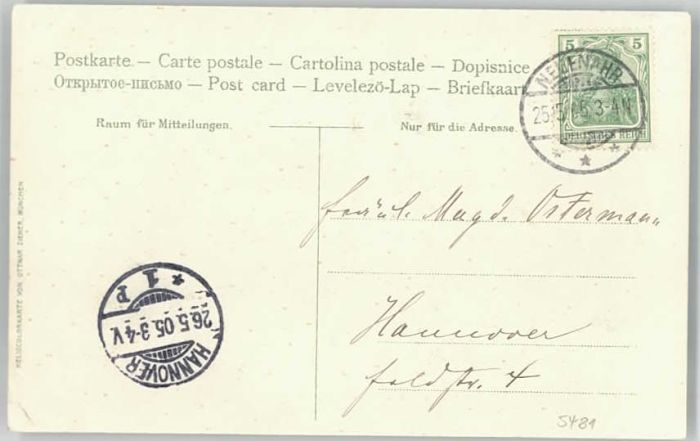 Postkarte — Carte postale — Cartolina postale — Dopisnice
Открытое-письмо — Post card — Levelezö-Lap — Briefkaart
Raum für Mitteilungen.
Nur für die Adresse.
5 5
DEUTSCHES REICH
NEUENAHR
25.5.05.3-4N
Fräul. Magd. Ostermann
Hannover
Feldstr. 4
* 1 P
26.5.05.3-4V.
HANNOVER
HELIOCOLORKARTE VON OTTMAR ZIEHER, MÜNCHEN
5481